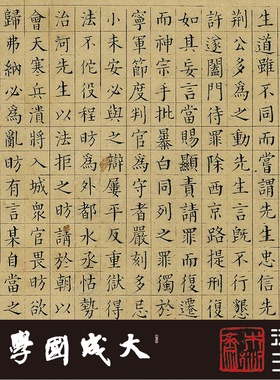 生道雖不同而嘗謂先生忠信先
荊公多為之動先生言既不行懇
許遂闔門待罪除西京路提刑
如其妄言當賜顯責請罪而獲遷
而神宗手批暴白同列之罪獨於
寧軍節度判官為守者嚴刻多忌
小未安必與之辯屢平反重獄得
法不佗役程昉為外都水丞怙勢
治河先生以法拒之昉請於朝以
會天寒兵潰將入城衆官畏昉欲
歸弗納必為亂昉有言某自當之
大成國學